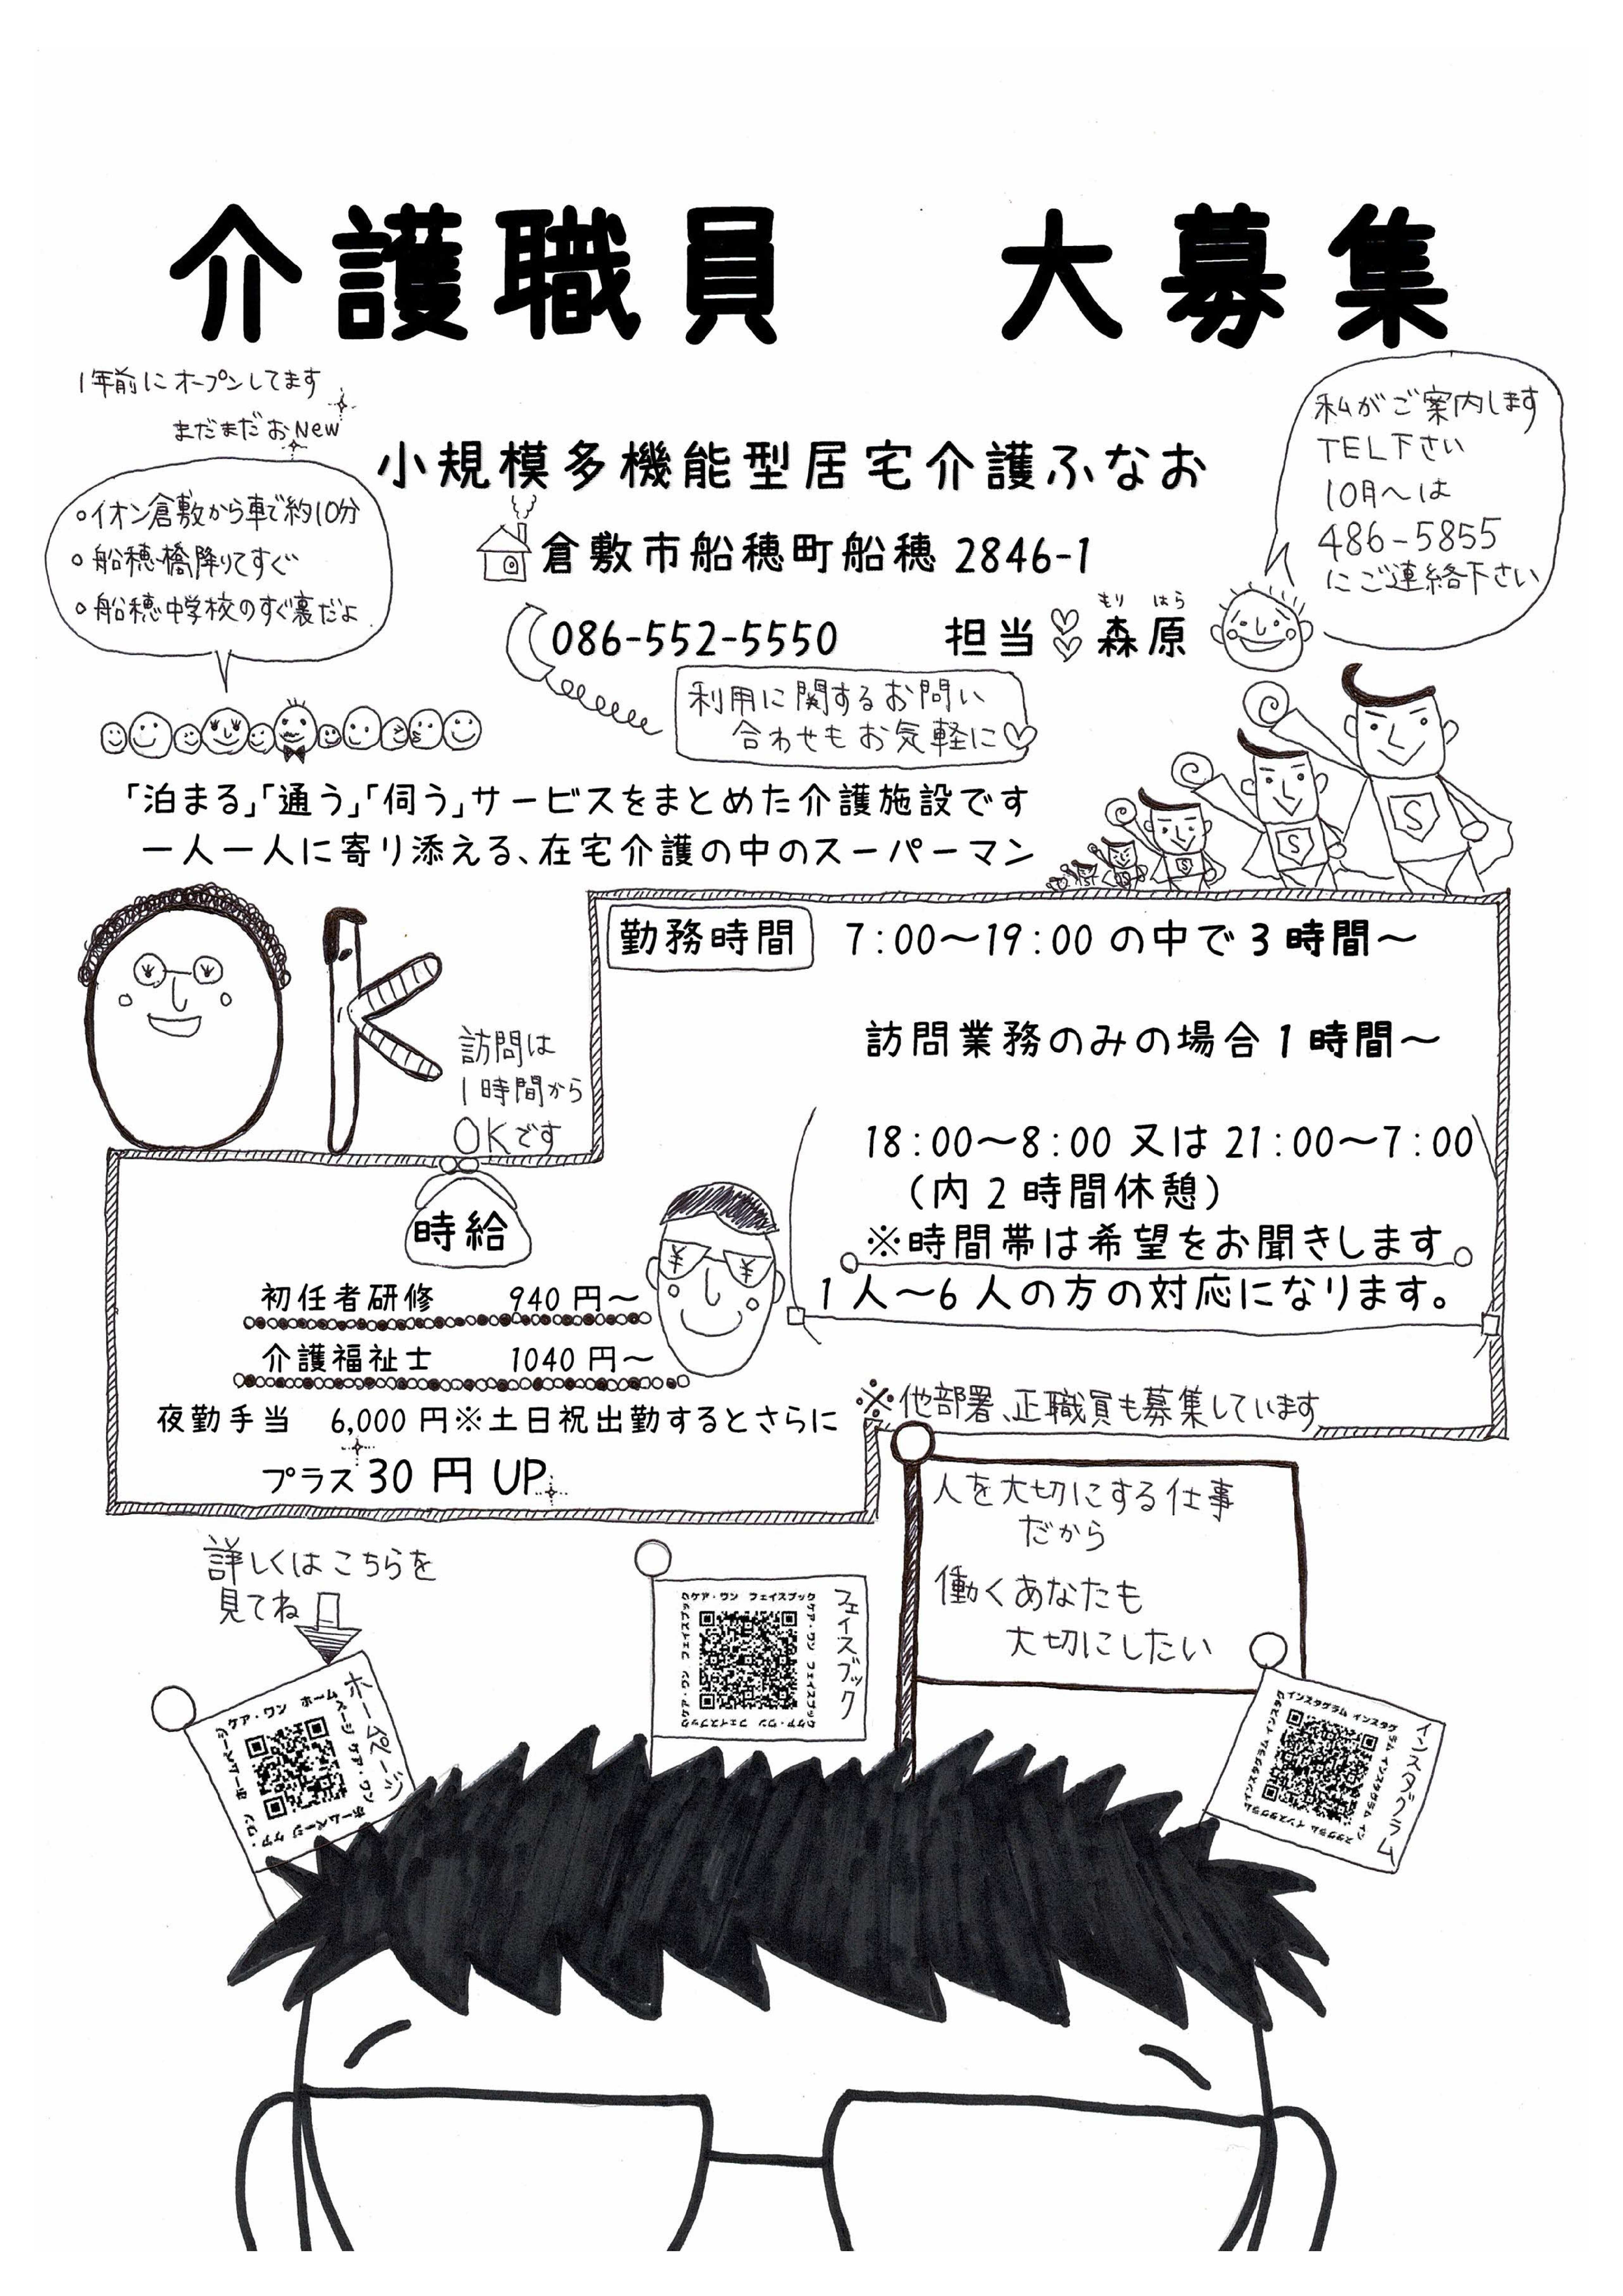 介護職員　大募集
1年前にオープンしてます
まだまだおNew
私がご案内します
TEL下さい
10月〜は
486-5855
にご連絡下さい
小規模多機能型居宅介護ふなお
・イオン倉敷から車で約10分
・船穂橋降りてすぐ
・船穂中学校のすぐ裏だよ
倉敷市船穂町船穂 2846-1
086-552-5550　担当　森原
もり　はら
利用に関するお問い
合わせもお気軽に♡
「泊まる」「通う」「伺う」サービスをまとめた介護施設です
一人一人に寄り添える、在宅介護の中のスーパーマン
S
S
S
OK
訪問は
1時間から
OKです
勤務時間　7:00〜19:00 の中で 3 時間〜
訪問業務のみの場合 1 時間〜
18:00〜8:00 又は 21:00〜7:00
（内 2 時間休憩）
※時間帯は希望をお聞きします
1 人〜6 人の方の対応になります。
時給
¥ ¥
初任者研修　940 円〜
介護福祉士　1040 円〜
夜勤手当　6,000 円※土日祝出勤するとさらに
プラス 30 円 UP
※他部署、正職員も募集しています
人を大切にする仕事
だから
働くあなたも
大切にしたい
詳しくはこちらを
見てね
ホームページ
ケア・ワン　ホームページ ケア・ワン ホームページ ケア・ワン ホームページ
フェイスブック
ケア・ワン　フェイスブック ケア・ワン フェイスブック ケア・ワン フェイスブック ケア・ワン フェイスブック
インスタグラム
インスタグラム インスタグラム インスタグラム インスタグラム インスタグラム インスタグラム